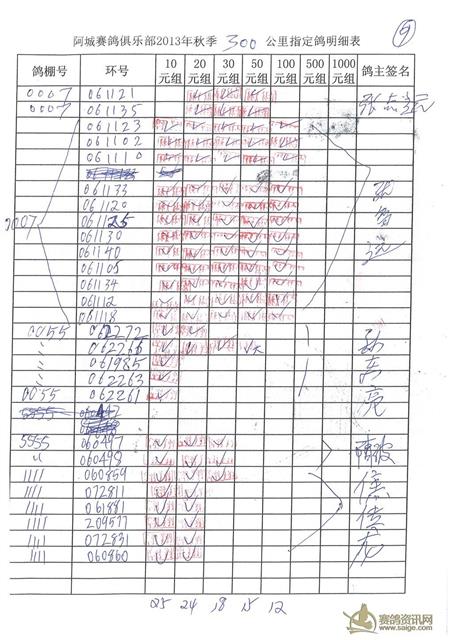 阿城赛鸽俱乐部2013年秋季 300 公里指定鸽明细表 ⑨
鸽棚号 环号 10元组 20元组 30元组 50元组 100元组 500元组 1000元组 鸽主签名
0007 061121
0007 061135
061123
061102
061110
061133
061120
0007 061125
061130
061140
061105
061134
061112
061118
0055 062272
〃 062266
〃 061985
〃 062263
0055 062261
5555 060497
〃 060498
1111 060859
1111 072811
1111 061881
1111 209577
1111 072831
1111 060860
25 24 18 15 12
赛鸽资讯网
www.saige.com